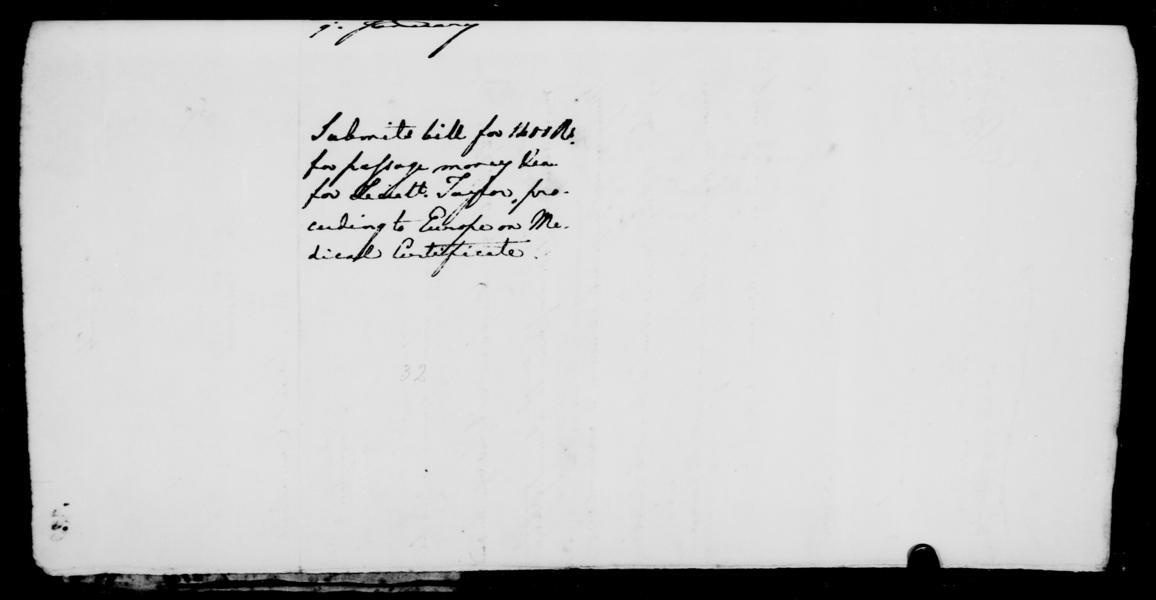 9. January
Submits bill for 1400 Rs.
for passage money &ca
for Lieutt. Taylor, pro-
ceeding to Europe on Me-
dical Certificate.
32